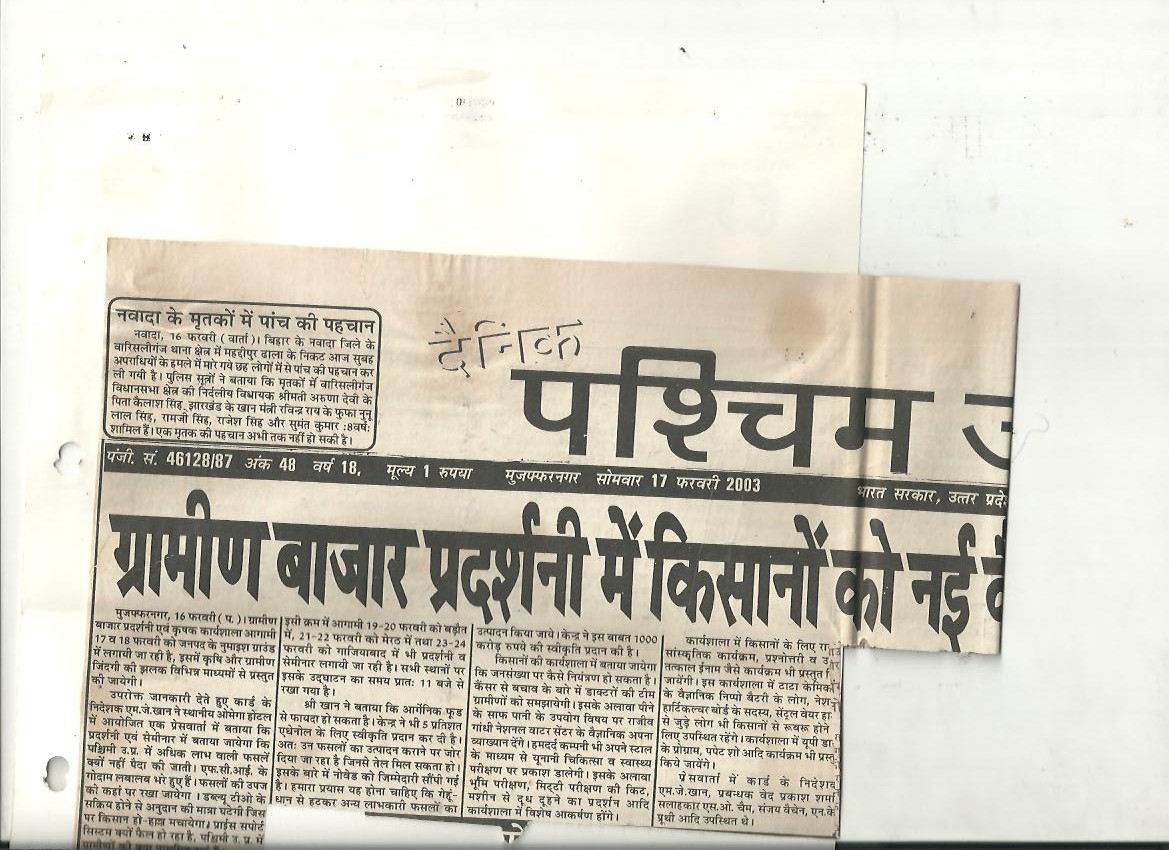 नवादा के मृतकों में पांच की पहचान
नवादा, 16 फरवरी (वार्ता)। बिहार के नवादा जिले के
वारिसलीगंज थाना क्षेत्र में महदीपुर ढाला के निकट आज सुबह
अपराधियों के हमले में मारे गये छह लोगों में से पांच की पहचान कर
ली गयी है। पुलिस सूत्रों ने बताया कि मृतकों में वारिसलीगंज
विधानसभा क्षेत्र की निर्दलीय विधायक श्रीमती अरुणा देवी के
पिता कैलाश सिंह, झारखंड के खान मंत्री रविन्द्र राय के फुफा नुनु
लाल सिंह, रामजी सिंह, राजेश सिंह और सुमंत कुमार :8वर्ष:
शामिल हैं। एक मृतक की पहचान अभी तक नहीं हो सकी है।
दैनिक
पश्चिम
पंजी. सं. 46128/87 अंक 48 वर्ष 18, मूल्य 1 रुपया मुजफ्फरनगर सोमवार 17 फरवरी 2003 भारत सरकार, उत्तर प्रदे
ग्रामीण बाजार प्रदर्शनी में किसानों को नई
मुजफ्फरनगर, 16 फरवरी (प.)। ग्रामीण
बाजार प्रदर्शनी एवं कृषक कार्यशाला आगामी
17 व 18 फरवरी को जनपद के नुमाइश ग्राउंड
में लगायी जा रही है, इसमें कृषि और ग्रामीण
जिंदगी की झलक विभिन्न माध्यमों से प्रस्तुत
की जायेगी।
उपरोक्त जानकारी देते हुए कार्ड के
निर्देशक एम.जे.खान ने स्थानीय ओमेगा होटल
में आयोजित एक प्रेसवार्ता में बताया कि
प्रदर्शनी एवं सेमीनार में बताया जायेगा कि
पश्चिमी उ.प्र. में अधिक लाभ वाली फसलें
क्यों नहीं पैदा की जाती। एफ.सी.आई. के
गोदाम लबालब भरे हुए हैं। फसलों की उपज
को कहां पर रखा जायेगा । डब्ल्यू टीओ के
सक्रिय होने से अनुदान की मात्रा घटेगी जिस
पर किसान हो-हल्ला मचायेगा। प्राईस सपोर्ट
सिस्टम क्यों फैल हो रहा है, पश्चिमी उ. प्र. में
इसी क्रम में आगामी 19-20 फरवरी को बड़ौत
में, 21-22 फरवरी को मेरठ में तथा 23-24
फरवरी को गाजियाबाद में भी प्रदर्शनी व
सेमीनार लगायी जा रही है। सभी स्थानों पर
इसके उद्घाटन का समय प्रातः 11 बजे से
रखा गया है।
श्री खान ने बताया कि आर्गेनिक फूड
से फायदा हो सकता है। केन्द्र ने भी 5 प्रतिशत
एथेनोल के लिए स्वीकृति प्रदान कर दी है।
अतः उन फसलों का उत्पादन कराने पर जोर
दिया जा रहा है जिनसे तेल मिल सकता हो।
इसके बारे में नोवेड को जिम्मेदारी सौंपी गई
है। हमारा प्रयास यह होना चाहिए कि गेहूं-
धान से हटकर अन्य लाभकारी फसलों का
उत्पादन किया जाये। केन्द्र ने इस बाबत 1000
करोड़ रुपये की स्वीकृति प्रदान की है।
किसानों की कार्यशाला में बताया जायेगा
कि जनसंख्या पर कैसे नियंत्रण हो सकता है।
कैंसर से बचाव के बारे में डाक्टरों की टीम
ग्रामीणों को समझायेगी। इसके अलावा पीने
के साफ पानी के उपयोग विषय पर राजीव
गांधी नेशनल वाटर सेंटर के वैज्ञानिक अपना
व्याख्यान देंगे। हमदर्द कम्पनी भी अपने स्टाल
के माध्यम से यूनानी चिकित्सा व स्वास्थ्य
परीक्षण पर प्रकाश डालेगी। इसके अलावा
भूमि परीक्षण, मिट्टी परीक्षण की किट,
मशीन से दूध दूहने का प्रदर्शन आदि
कार्यशाला में विशेष आकर्षण होंगे।
कार्यशाला में किसानों के लिए
सांस्कृतिक कार्यक्रम, प्रश्नोत्तरी व
तत्काल ईनाम जैसे कार्यक्रम भी प्रस्तुत
जायेंगी। इस कार्यशाला में टाटा
के वैज्ञानिक निप्पो बैटरी के लोग,
हार्टिकल्चर बोर्ड के सदस्य, सेंट्रल वेयर
से जुड़े लोग भी किसानों से रूबरू होने
लिए उपस्थित रहेंगे। कार्यशाला में यूपी
के प्रोग्राम, पपेट शो आदि कार्यक्रम भी
किये जायेंगे।
प्रेसवार्ता में कार्ड के निर्देशक
एम.जे.खान, प्रबन्धक वेद प्रकाश शर्मा
सलाहकार एस.ओ. चैम, संजय वैचेन, एन.के
पृथी आदि उपस्थित थे।